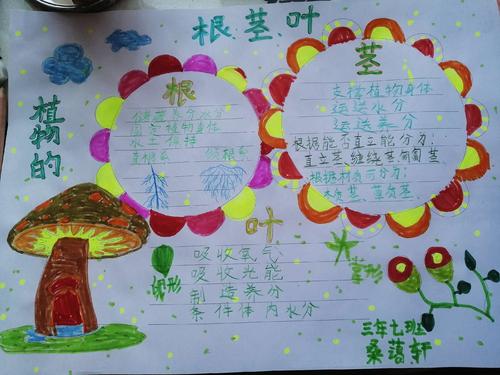 根茎叶
植物的
根
储藏养分水分
固定植物身体
水土保持
直根系 须根系
茎
支撑植物身体
运送水分
运送养分
根据能否直立能分为:
直立茎、缠绕茎、匍匐茎
根据材质可分为:
木质茎、草质茎。
叶
吸收氧气
吸收光能
制造养分
条件体内水分
卵形
掌形
三年七班
桑蕗轩